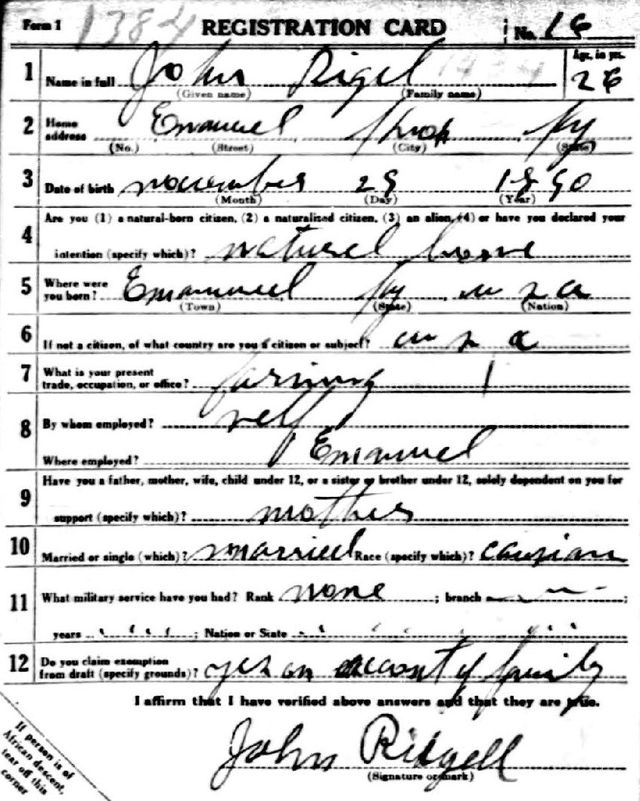 Form 1 1384 REGISTRATION CARD No. 16
1 Name in full John Rigel Age, in yrs. 26
(Given name) (Family name)
2 Home address Emanuel Ky
(No.) (Street) (City) (State)
3 Date of birth November 29 1890
(Month) (Day) (Year)
4 Are you (1) a natural-born citizen, (2) a naturalized citizen, (3) an alien, (4) or have you declared your
intention (specify which)? natural borne
5 Where were you born? Emanuel Ky u s a
(Town) (State) (Nation)
6 If not a citizen, of what country are you a citizen or subject? u s a
7 What is your present trade, occupation, or office? farming
8 By whom employed? self
Where employed? Emanuel
9 Have you a father, mother, wife, child under 12, or a sister or brother under 12, solely dependent on you for
support (specify which)? mother
10 Married or single (which)? married Race (specify which)?
11 What military service have you had? Rank none ; branch ;
years ; Nation or State
12 Do you claim exemption from draft (specify grounds)? yes on account of family
I affirm that I have verified above answers and that they are true.
John Ridgell
(Signature or mark)
If person is of
African descent,
tear off this
corner